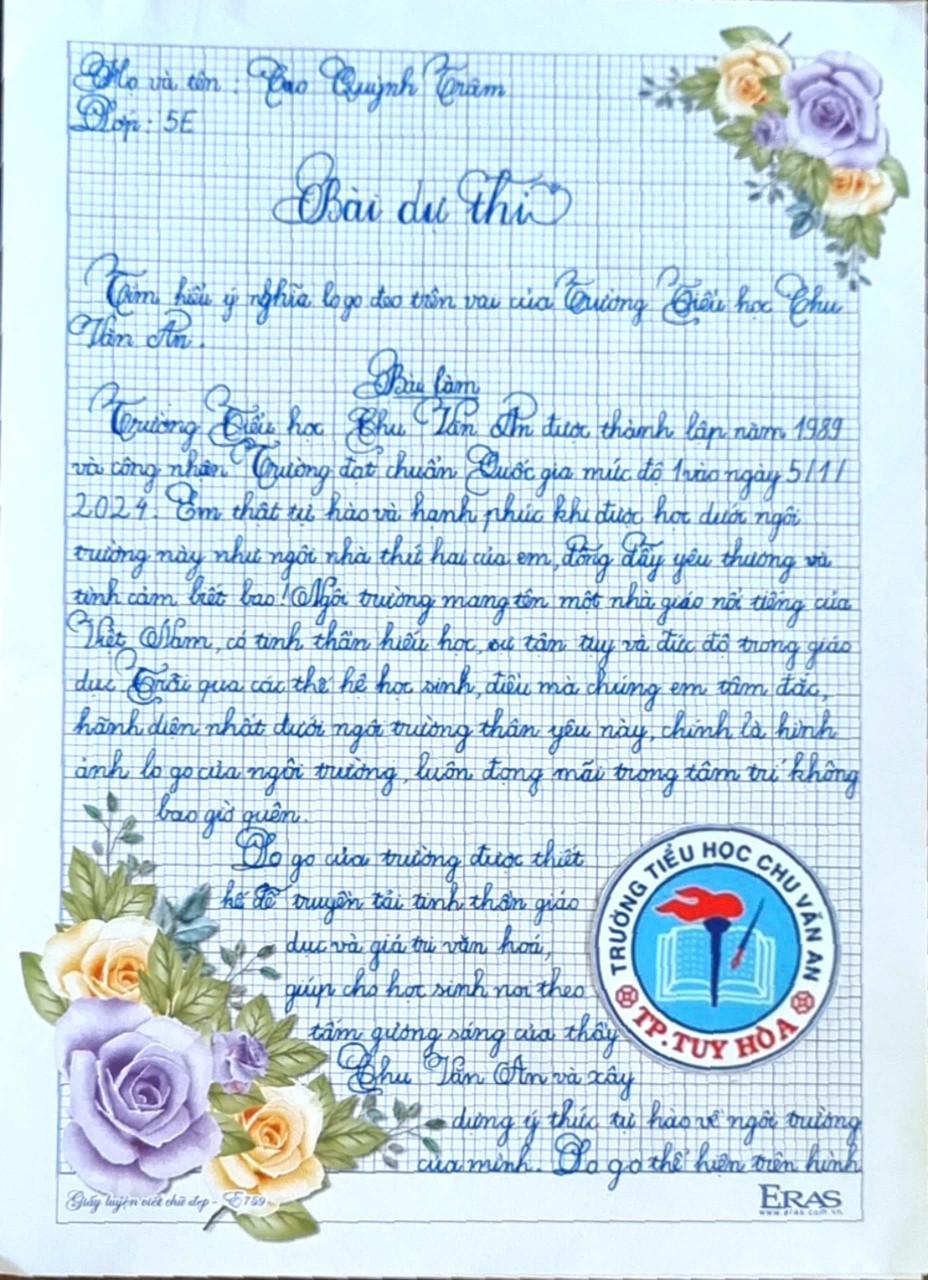 Họ và tên : Cao Quỳnh Trâm
Lớp : 5E
Bài dự thi
Tìm hiểu ý nghĩa lo go đeo trên vai của Trường Tiểu học Chu
Văn An .
Bài làm
Trường Tiểu học Chu Văn An được thành lập năm 1989
và công nhận Trường đạt chuẩn Quốc gia mức độ 1 vào ngày 5/1/
2024. Em thật tự hào và hạnh phúc khi được học dưới ngôi
trường này như ngôi nhà thứ hai của em, đong đầy yêu thương và
tình cảm biết bao! Ngôi trường mang tên một nhà giáo nổi tiếng của
Việt Nam, có tinh thần hiếu học, sự tận tụy và đức độ trong giáo
dục. Trải qua các thế hệ học sinh, điều mà chúng em tâm đắc,
hãnh diện nhất dưới ngôi trường thân yêu này, chính là hình
ảnh lo go của ngôi trường, luôn đọng mãi trong tâm trí không
bao giờ quên.
Lo go của trường được thiết
kế để truyền tải tinh thần giáo
dục và giá trị văn hoá,
giúp cho học sinh noi theo
tấm gương sáng của thầy
Chu Văn An và xây
dựng ý thức tự hào về ngôi trường
của mình. Lo go thể hiện trên hình
TRƯỜNG TIỂU HỌC CHU VĂN AN
TP. TUY HÒA
Giấy luyện viết chữ đẹp - E759
ERAS
www.eras.com.vn